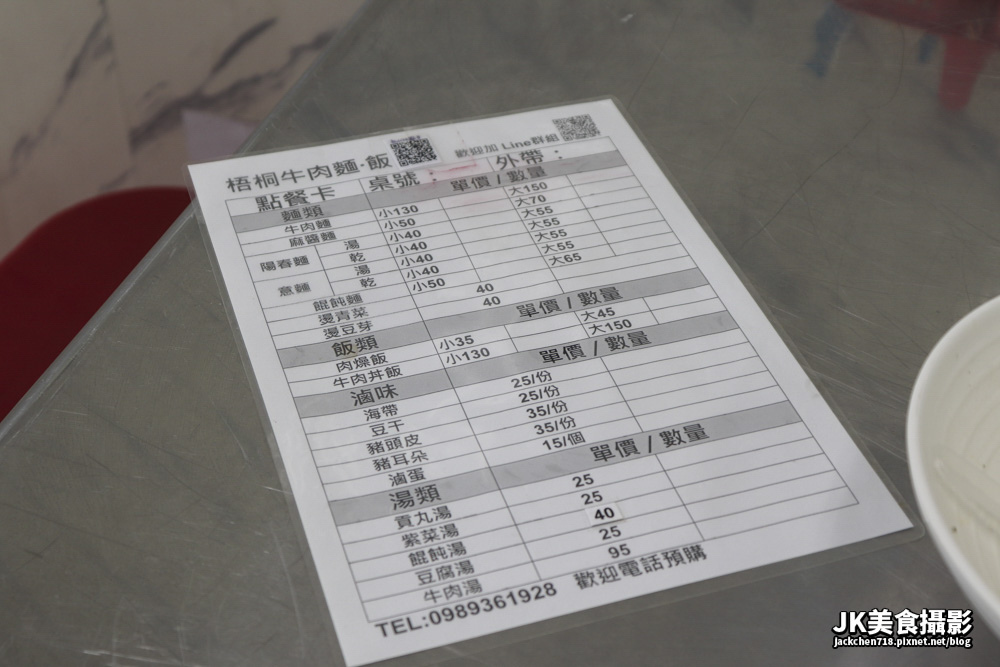 梧桐牛肉麵.飯 歡迎加 Line群組
點餐卡 桌號： 外帶：
麵類 單價 / 數量
牛肉麵 小130 大150
麻醬麵 小50 大70
陽春麵 湯 小40 大55
乾 小40 大55
意麵 湯 小40 大55
乾 小40 大55
餛飩麵 小50 大65
燙青菜 40
燙豆芽 40
飯類 單價 / 數量
肉燥飯 小35 大45
牛肉丼飯 小130 大150
滷味 單價 / 數量
海帶 25/份
豆干 25/份
豬頭皮 35/份
豬耳朵 35/份
滷蛋 15/個
湯類 單價 / 數量
貢丸湯 25
紫菜湯 25
餛飩湯 40
豆腐湯 25
牛肉湯 95
TEL:0989361928 歡迎電話預購
JK美食攝影
jackchen718.pixnet.net/blog